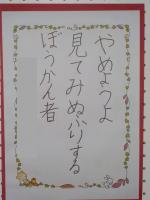 やめようよ
見てみぬふりする
ぼうかん者